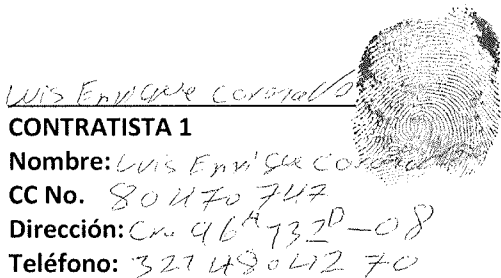 Luis Enrique Coronado
CONTRATISTA 1
Nombre: Luis Enrique
CC No. 80470747
Dirección: Cra 96A 732D-08
Teléfono: 3214804270